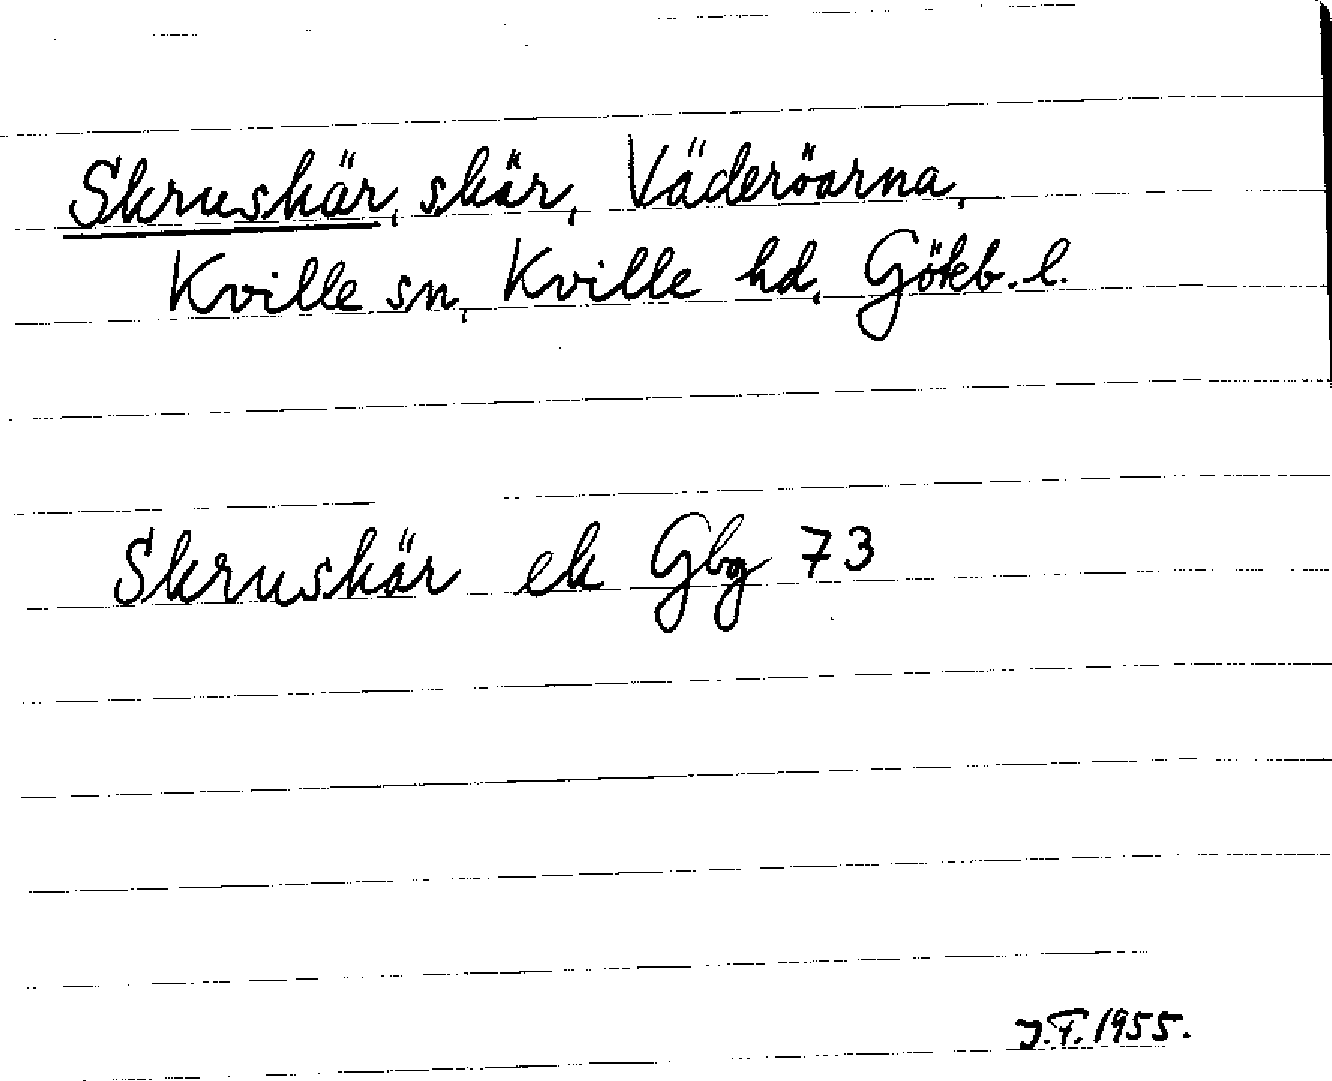 Skruskär, skär, Väderöarna,
Kville sn, Kville hd, Gökb. l.
Skruskär ek Gbg 73
J.F. 1955.